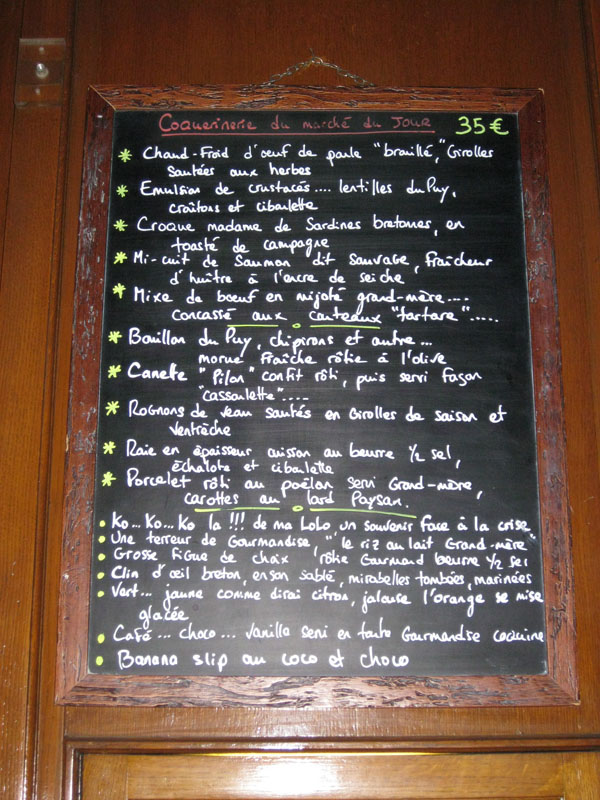 Coquerinerie du marché du Jour 35€
* Chaud-Froid d'oeuf de poule "brouillé," Girolles
Sautées aux herbes
* Emulsion de crustacés.... lentilles du Puy,
croûtons et ciboulette
* Croque madame de Sardines bretonnes, en
toasté de campagne
* Mi-cuit de Saumon dit sauvage, Fraîcheur
d'huître à l'encre de seiche
* Mixe de boeuf en mijoté grand-mère....
concassé aux couteaux "tartare".....
* Bouillon du Puy, chipirons et autre...
morue fraîche rôtie à l'olive
* Canette "Pilon" confit rôti, puis servi façon
"cassoulette"....
* Rognons de veau sautés en Girolles de saison et
ventrèche
* Raie en épaisseur cuisson au beurre 1/2 sel,
échalote et ciboulette
* Porcelet rôti au poêlon servi Grand-mère,
carottes au lard Paysan.
• Ko... Ko... Ko la !!! de ma Lolo un souvenir face à la crise
• Une terreur de Gourmandise, "le riz au lait Grand-mère"
• Grosse Figue de choix, rôtie Gourmand beurre 1/2 sel
• Clin d'œil breton, en son sablé, mirabelles tombées, marinées
• Vert... jaune comme dirai citron, jalouse l'orange se mise
glacée
• Café... choco... vanille servi en tarte Gourmandise coquine
• Banana slip au coco et choco